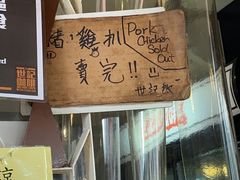 豬雞扒
賣完!!
世記
Pork
Chicken
Sold
Out
世記
咖啡